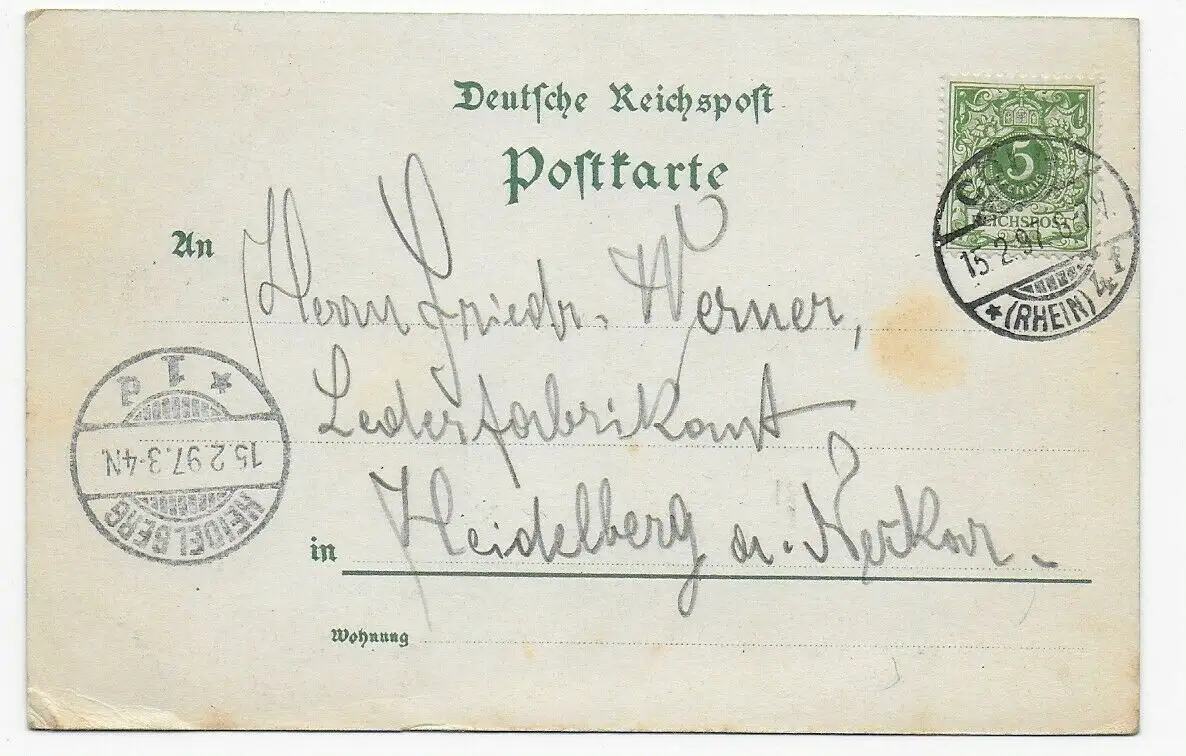 Deutsche Reichspost
Postkarte
5
PFENNIG
REICHSPOST
15.2.97
* (RHEIN) 4f
An
Herrn Friedr. Werner,
Lederfabrikant
in Heidelberg a. Neckar.
Wohnung
* 1 d
15.2.97.3-4N.
HEIDELBERG